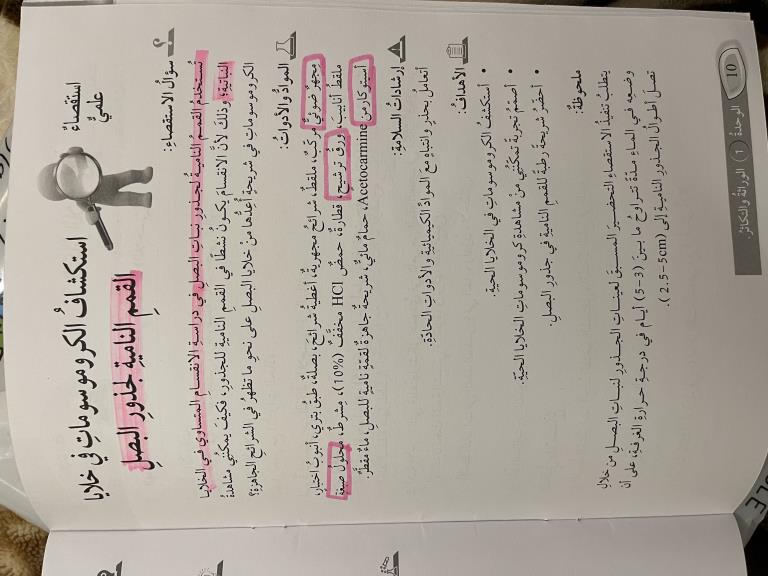 استقصاءٌ
علميٌّ
استكشافُ الكروموسوماتِ في خلايا
القممِ الناميةِ لجذورِ البصلِ
سؤالُ الاستقصاءِ:
تُستخدَمُ القممُ الناميةُ لجذورِ نباتِ البصلِ في دراسةِ الانقسامِ المتساوي في الخلايا
النباتيةِ؛ وذلكَ لأنَّ الانقسامَ يكونُ نشطًا في القممِ الناميةِ للجذورِ، فكيفَ يمكنُني مشاهدةُ
الكروموسوماتِ في شريحةٍ أُعِدُّها من خلايا البصلِ على نحوِ ما تظهرُ في الشرائحِ الجاهزةِ؟
الموادُّ والأدواتُ:
مجهرٌ ضوئيٌّ مركّبٌ، ملقطٌ، شرائحُ مجهريةٌ، أغطيةُ شرائحَ، بصلةٌ، طبقُ بتري، أنبوبُ اختبارٍ،
ملقطُ أنابيبَ، ورقُ ترشيحٍ، قطّارةٌ، حمضُ HCl مخفّفٌ (10%)، مِشرطٌ، محلولُ صبغةِ
أسيتوكارمن Acetocarmine، حمامٌ مائيٌّ، شريحةٌ جاهزةٌ لقمّةٍ ناميةٍ للبصلِ، ماءٌ مقطّرٌ.
إرشاداتُ السلامةِ:
أتعاملُ بحذرٍ وانتباهٍ معَ الموادِّ الكيميائيةِ والأدواتِ الحادّةِ.
الأهدافُ:
• أستكشفُ الكروموسوماتِ في الخلايا الحيّةِ.
• أصمّمُ تجربةً تمكّنُني من مشاهدةِ كروموسوماتِ الخلايا الحيّةِ.
• أحضّرُ شريحةً رطبةً للقممِ الناميةِ في جذورِ البصلِ.
ملحوظةٌ:
يتطلّبُ تنفيذُ الاستقصاءِ التحضيرَ المسبقَ لعيناتِ الجذورِ لنباتِ البصلِ من خلالِ
وضعِهِ في الماءِ مدّةً تتراوحُ ما بينَ (3-5) أيامٍ في درجةِ حرارةِ الغرفةِ، على أن
تصلَ أطوالُ الجذورِ الناميةِ إلى (2.5-5cm).
10
الوحدةُ (1) الوراثةُ والتكاثرُ.